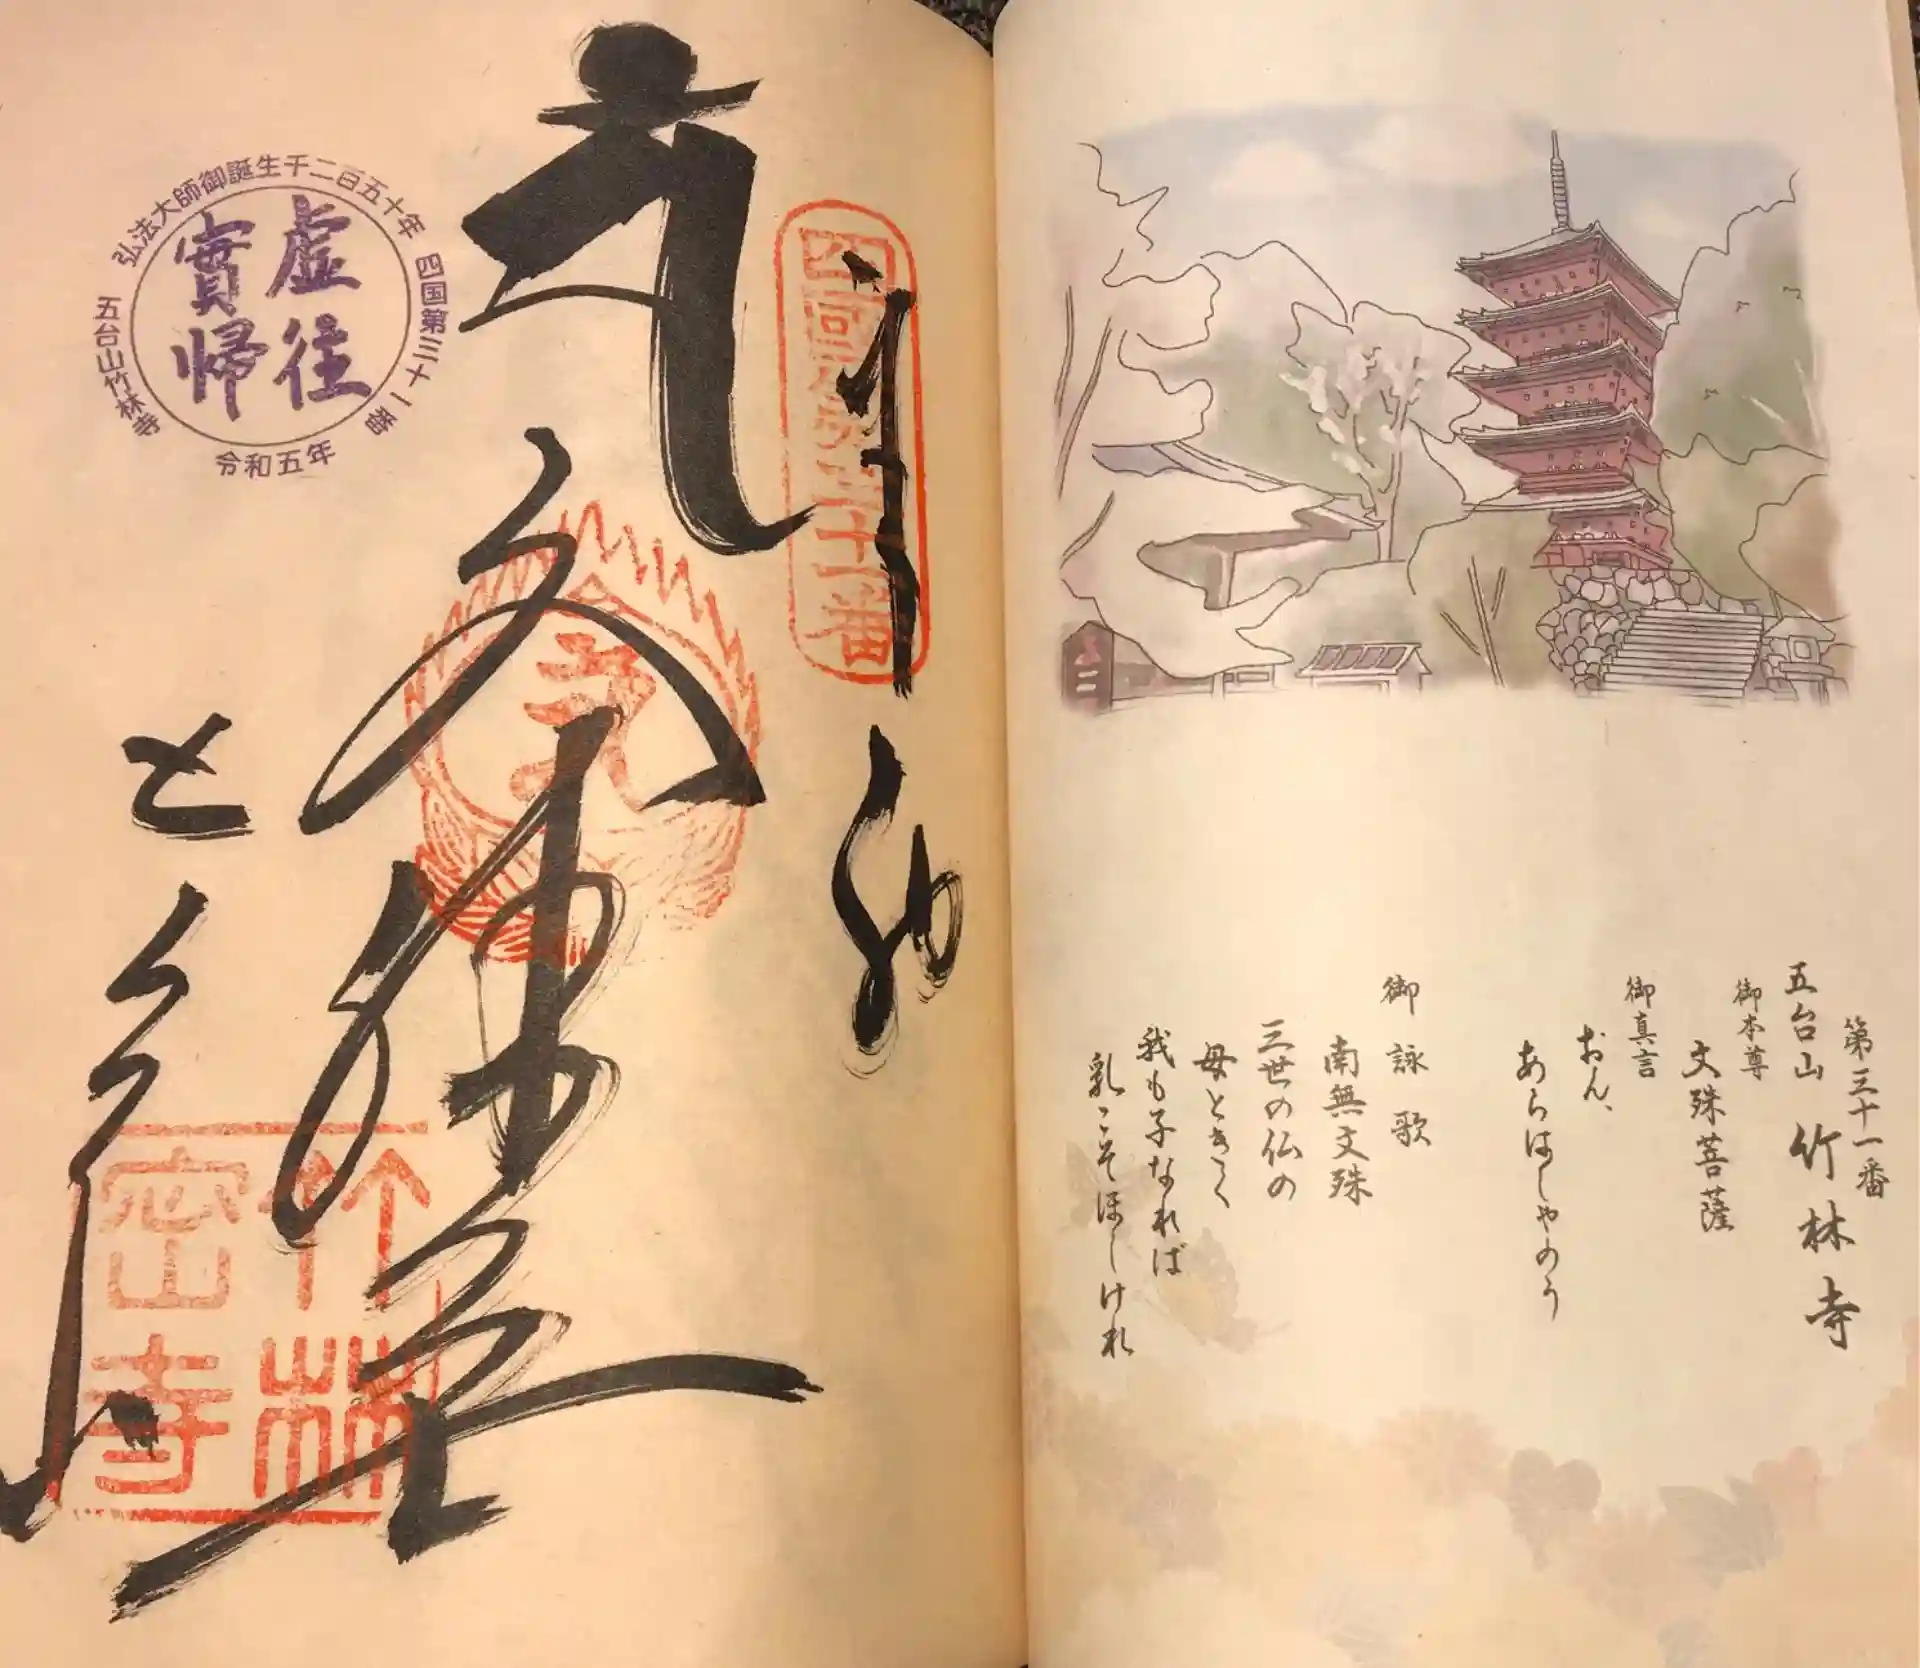 第三十一番
五台山 竹林寺
御本尊
文殊菩薩
御真言
おん、
あらはしやのう
御詠歌
南無文殊
三世の仏の
母ときく
我も子なれば
乳こそほしけれ
四国第三十一番
奉納
文殊
竹林
密寺
弘法大師御誕生千二百五十年 四国第三十一番
虚往
實帰
五台山竹林寺
令和五年